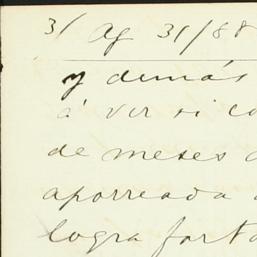 3/ Ag 31/88
y demás
á ver si co
de meses
aporreada
logra fort